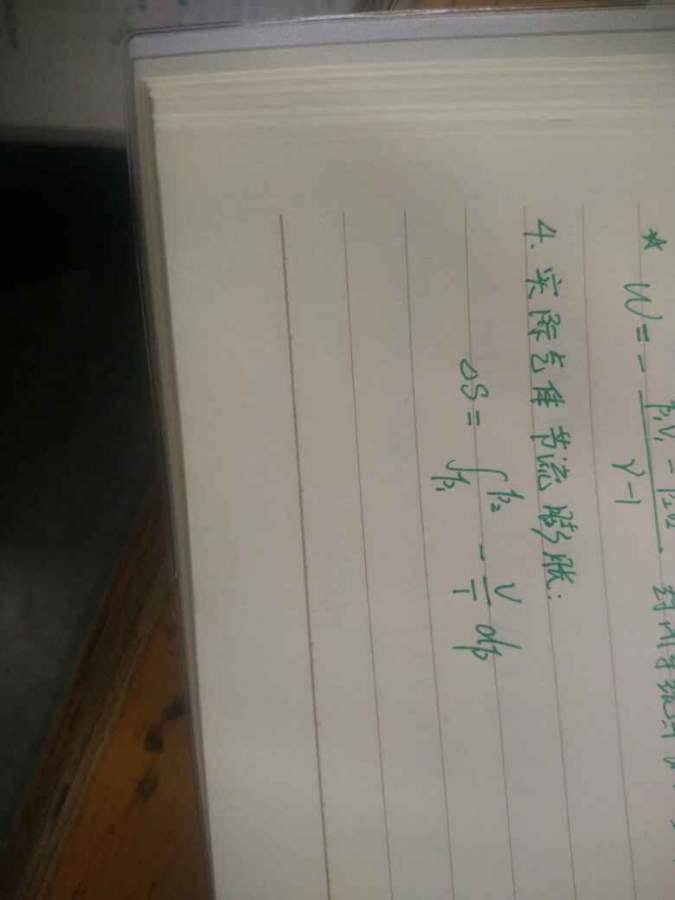 * W = - \frac{p_1V_1 - p_2V_2}{γ-1}
4. 实际气体节流膨胀:
ΔS = ∫_{p_1}^{p_2} - \frac{V}{T} dp